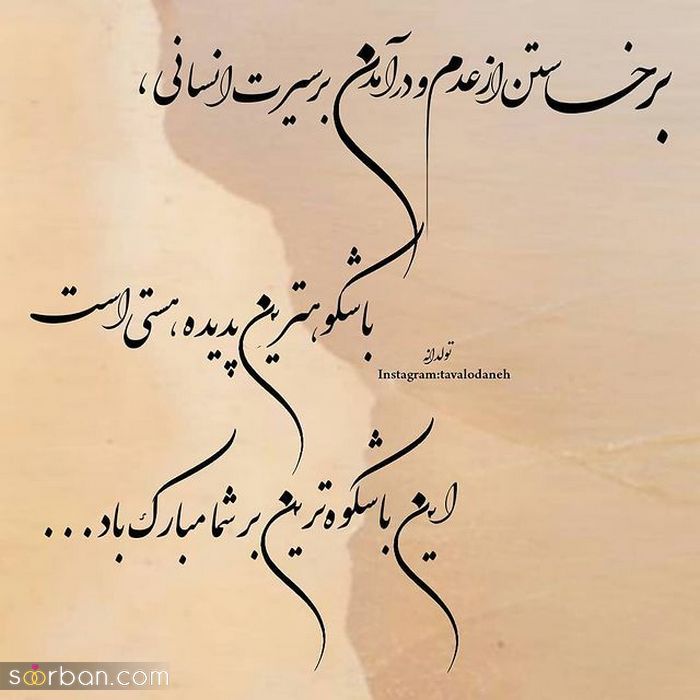 برخاستن از عدم و درآمدن بر سیرت انسانی ،
باشکوهترین پدیده هستی است
تولدانه
Instagram:tavalodaneh
این باشکوه ترین بر شما مبارک باد...
soorban.com